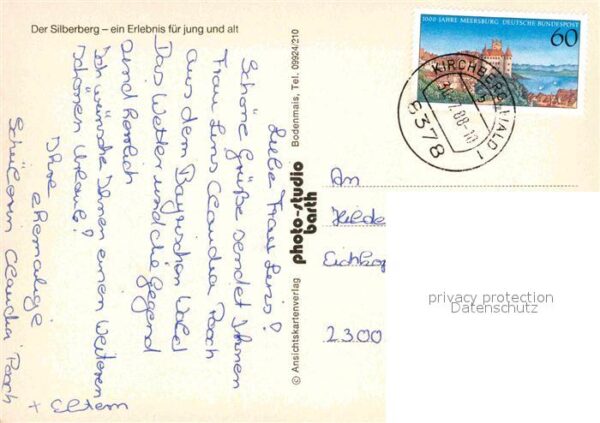 Der Silberberg – ein Erlebnis für jung und alt
Liebe Frau Lens!
Schöne Grüße sendet Ihnen
Frau Lens Claudia Posch
aus dem Bayrischen Wald
Das Wetter und die Gegend
sind herrlich
Ich wünsche Ihnen einen weiteren
schönen Urlaub!
Ihre
ehemalige
Schülerin Claudia Posch
+ Eltern
© Ansichtskartenverlag photo-studio barth Bodenmais, Tel. 09924/210
1000 JAHRE MEERSBURG DEUTSCHE BUNDESPOST
60
KIRCHBERG, WALD 1
8378
An
Hilde
2300
privacy protection
Datenschutz